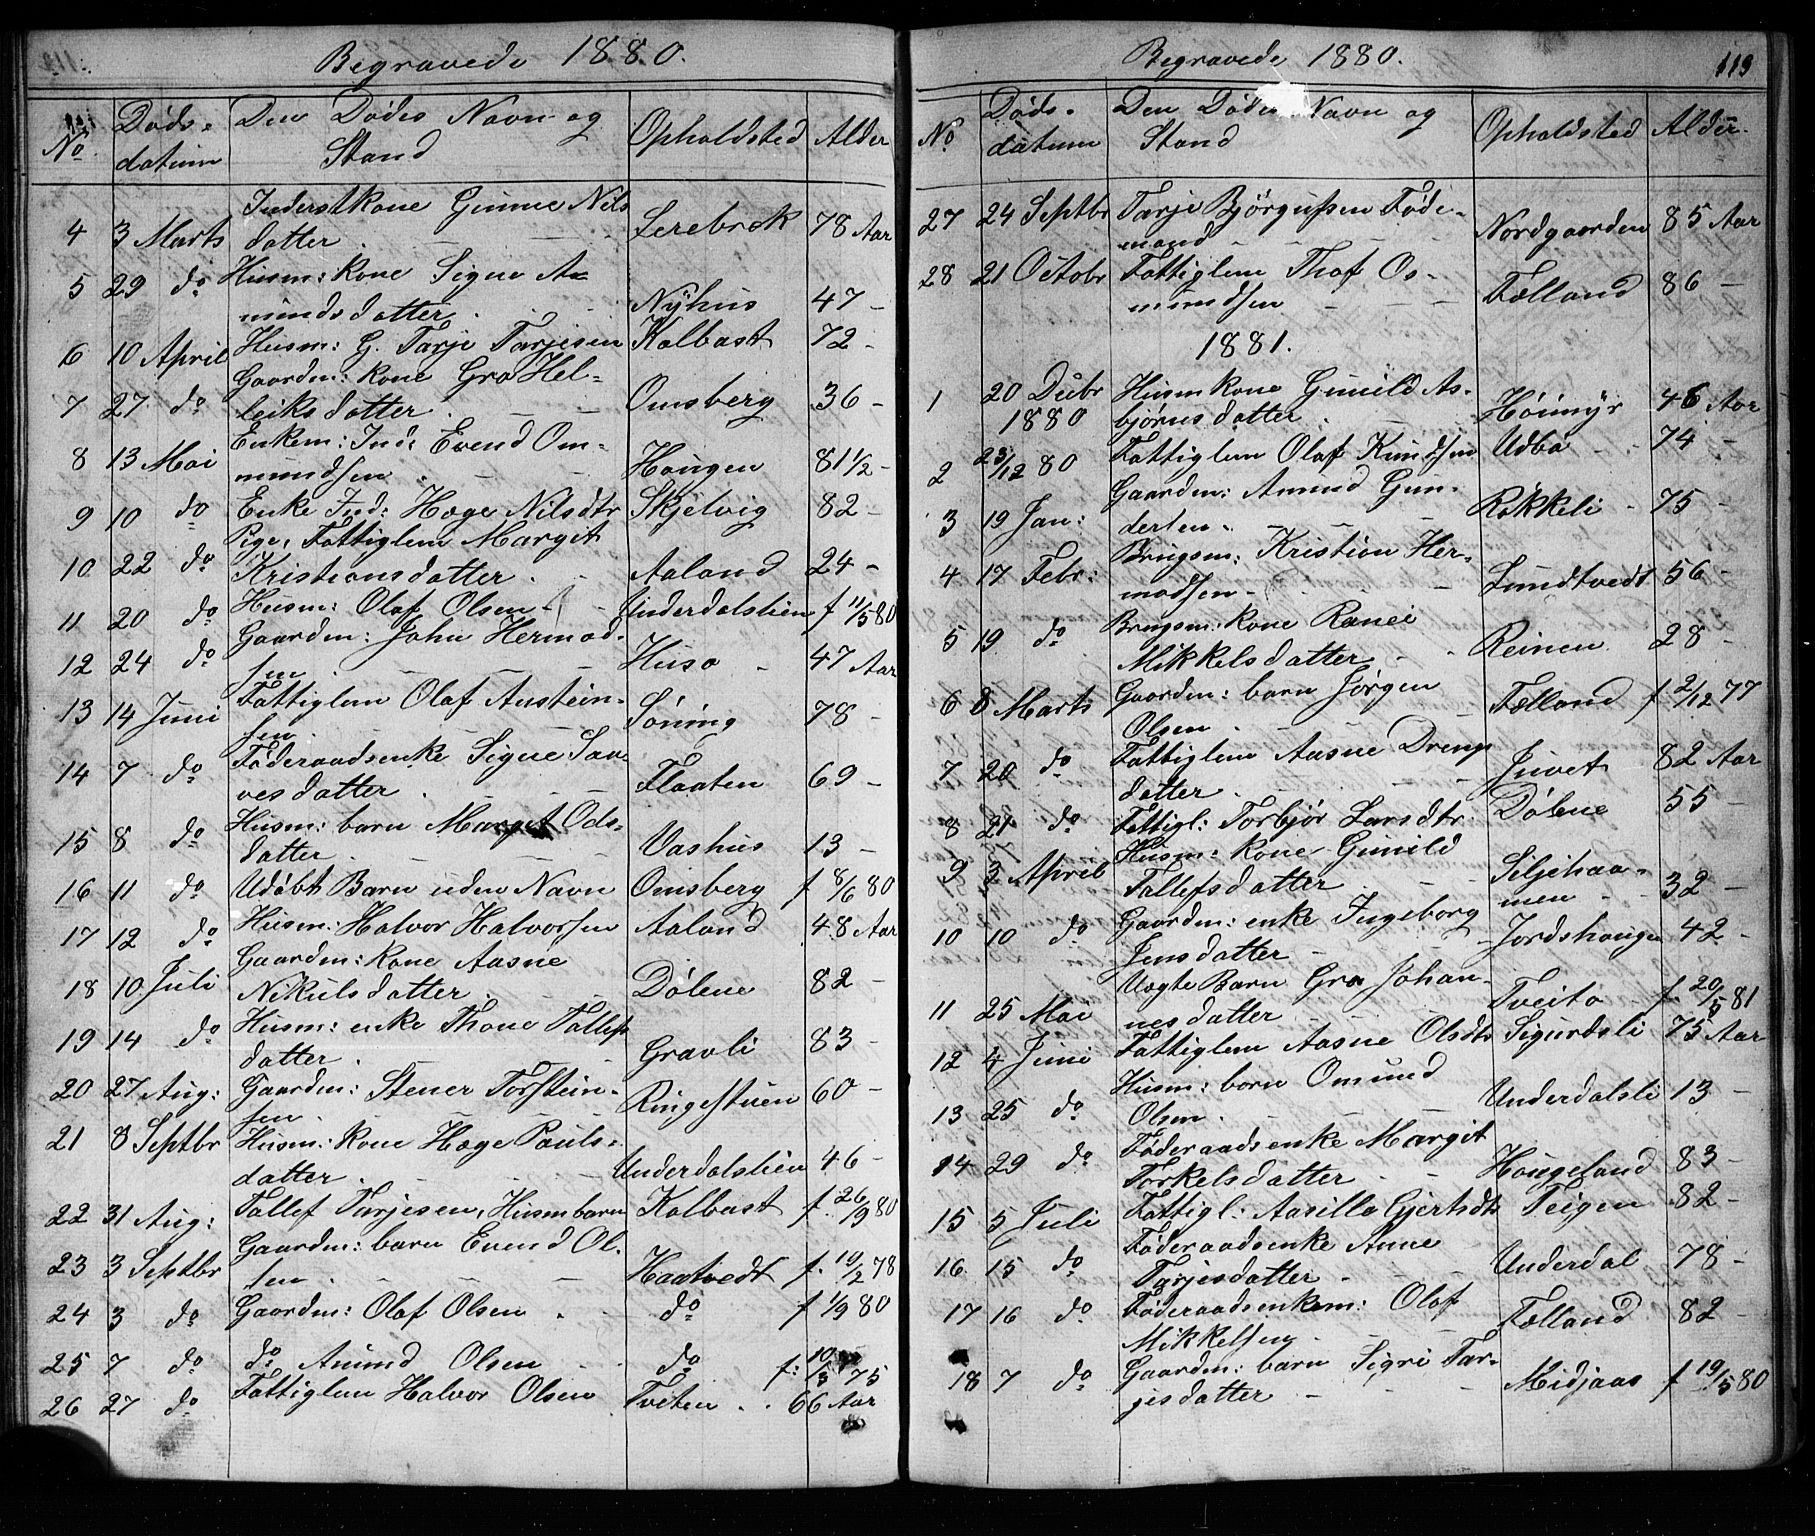 Begravede 1880.
No Døds-datum Den Dødes Navn og Stand Opholdsted Alder
4 3 Marts Inderstkone Gunne Nils
datter. Lerebrek 78 Aar
5 29 do Husm: kone Signe A-
mundsdatter. Nyhus 47 -
6 10 April Husm: G. Tarje Tarjesen Kolbast 72 -
7 27 do Gaardm: kone Gro Hel-
leiksdatter. Omsberg 36 -
8 13 Mai Enkem: Ind: Evend Om-
mundsen Haugen 81 1/2 -
9 10 do Enke Ind: Hæge Nilsdtr Skjelvig 82 -
10 22 do Pige, Fattiglem Margit
Kristiansdatter. Aaland 24 -
11 20 do Husm: Olaf Olsen - Underdalslien f 11/5 80
12 24 do Gaardm: John Hermod-
sen Huso - 47 Aar
13 14 Juni Fattiglem Olaf Austein-
sen. Søning 78 -
14 7 do Føderaadsenke Signe Saa-
vesdatter. Flaaten 69 -
15 8 do Husm: barn Margit Ods-
datter. Vashus 13 -
16 11 do Udøbt Barn uden Navn Omsberg f 8/6 80
17 12 do Husm: Halvor Halvorsen Aaland 48 Aar
18 10 Juli Gaardm: kone Aasne
Nikulsdatter. Dølene 82 -
19 14 do Husm: enke Thone Tallefs
datter. Gravli 83 -
20 27 Aug: Gaardm: Stener Torstein-
sen. Ringestuen 60 -
21 8 Septbr Husm: kone Hæge Pauls-
datter. Underdalslien 46 -
22 31 Aug: Tallef Tarjesen, Husm barn Kolbast f. 26/9 80
23 3 Septbr Gaardm: barn Evend Ol-
sen. Haatvedt f. 10/2 78
24 3 do Gaardm: Olaf Olsen. do f 1/9 80
25 7 do do Amund Olsen do f: 10/3 75
26 27 do Fattiglem Halvor Olsen Tveten . . 66 Aar
Begravede 1880. 113
No Døds-datum Den Dødes Navn og Stand Opholdsted Alder
27 24 Septbr Tarje Bjørgufsen Føde-
mand Nordgaarden 85 Aar
28 21 Octobr Fattiglem Thof Os-
mundsen Fælland 86 -
1881.
1 20 Debr 1880 Husmkone Gunild As-
bjørnsdatter. Høimyr 46 Aar
2 23/12 80 Fattiglem Olaf Knudsen Udbø 74 -
3 19 Jan: Gaardm: Amund Gun-
dersen. Rokkeli 75 -
4 17 Febr: Brugsm: Kristian Her-
modsen. Lundtvedt 56 -
5 19 do Brugsm: kone Ranei
Mikkelsdatter. Reinen 28 -
6 8 Marts Gaardm: barn Jørgen
Olsen. Fælland f 2/12 77
7 20 do Fattiglem Aasne Drengs
datter. Juvet 82 Aar
8 21 do Fattigl: Torbjør Larsdtr. Dølene 55 -
9 3 April Husm: kone Gunild
Tallefsdatter. Seljehaa-
men 32 -
10 10 do Gaardm: enke Ingeborg
Jensdatter Jordshaugen 42 -
11 25 Mai Uægte Barn Gro Johan-
nesdatter. Tveito f. 20/5 81
12 4 Juni Fattiglem Aasne Olsdtr Sigurdsli 75 Aar
13 25 do Husm: barn Omund
Olsen. Underdalsli 13 -
14 29 do Føderaadsenke Margit
Torkelsdatter. Haugeland 83 -
15 5 Juli Fattigl: Aasille Gjertsdt Teigen 82 -
16 15 do Føderaadsenke Anne
Tarjesdatter. Underdal 78 -
17 16 do Føderaadsenkem: Olaf
Mikkelsen. Fælland 82 -
18 7 do Gaardm: barn Sigri Tar-
jesdatter Midjaas f 19/5 80